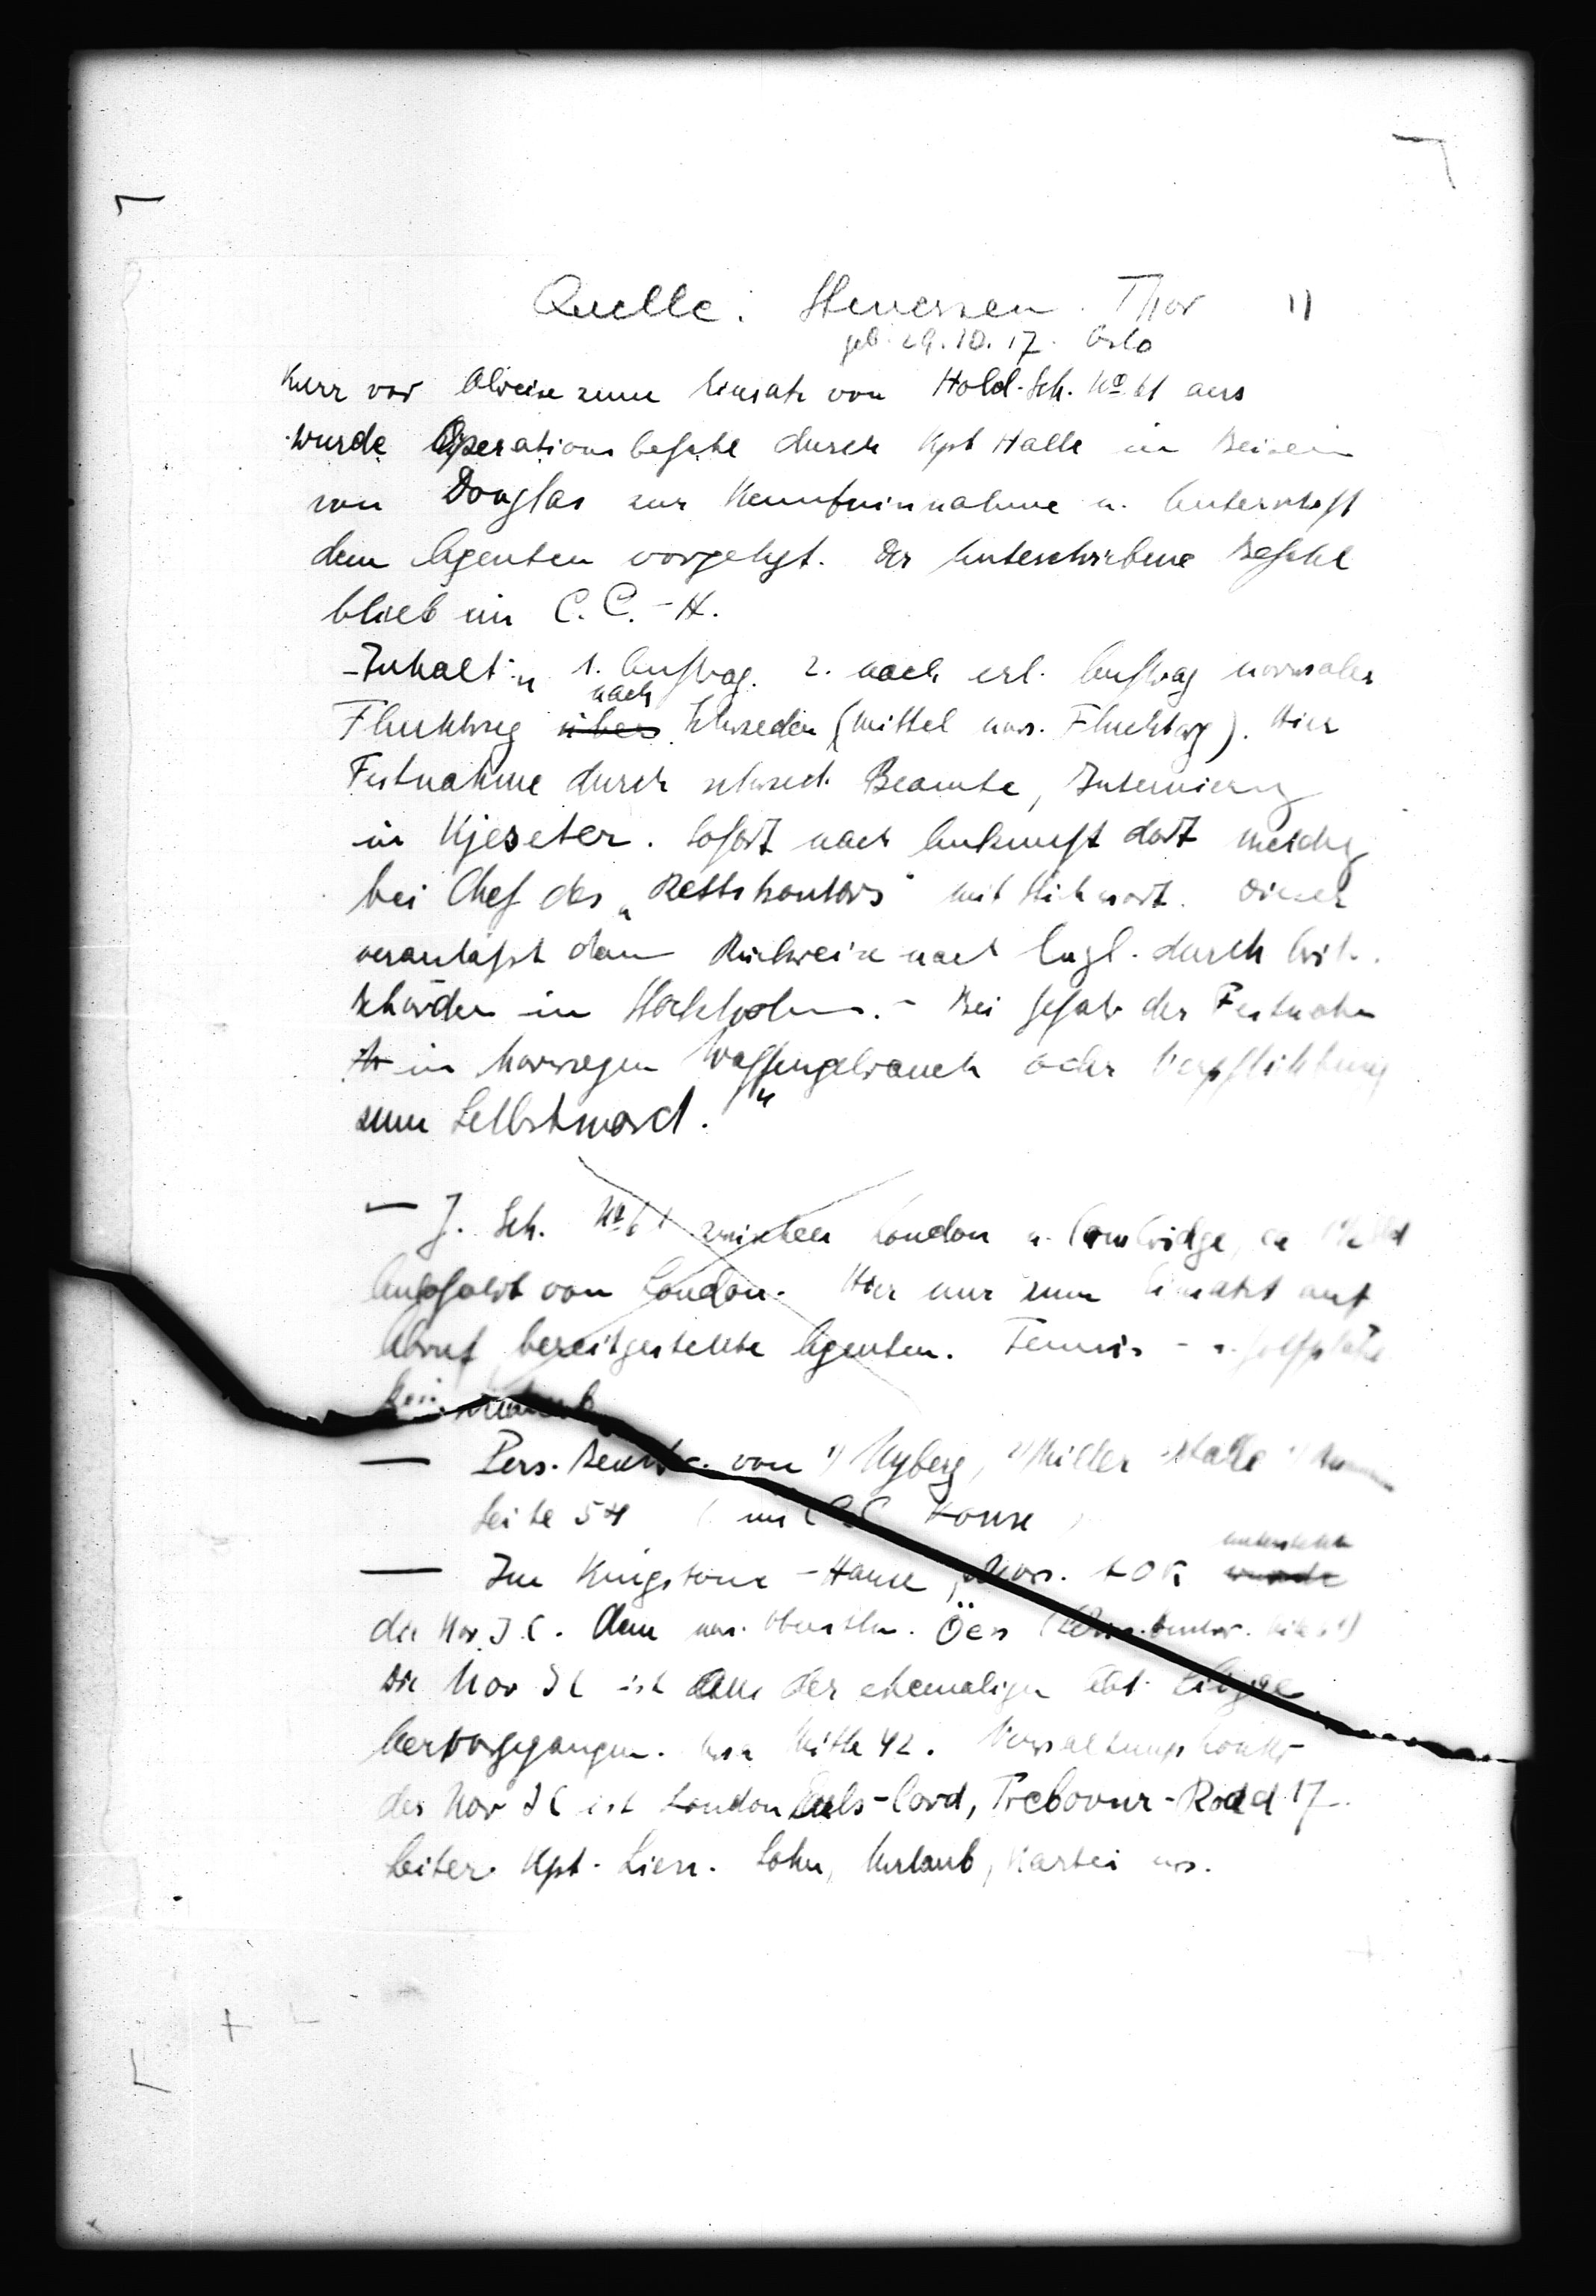 Quelle: Stenersen Thor 1)
geb. 29.10.17. Oslo
Kurz vor Abreise zum Einsatz von Hold-Sch. No 61 aus
wurde Operationsbefehl durch Kpt Halle im Beisein
von Douglas zur Kenntnisnahme u. Unterschrift
dem Agenten vorgelegt. Der unterschriebene Befehl
blieb im C.C.-H.
-Inhalt: „ 1. Auftrag. 2. nach erl. Auftrag normaler
nach
Fluchtweg über Schweden (Mittel nors. Fluchtorg). Hier
Festnahme durch schwed. Beamte, Internierung
in Kjeseter. Sofort nach Ankunft dort Meldg
bei Chef des „Rettskontors" mit Stichwort. Dieser
veranlaßt dann Rückreise nach Engl. durch brit.
Behörden in Stockholm. - Bei Gefahr der Festnahme
in Norwegen Waffengebrauch oder Verpflichtung
zum Selbstmord."
— J. Sch. No 61 zwischen London u. Cambridge, ca
von London. Hier nur zum Einsatz auf
Abruf bereitgestellte Agenten. Tennis- u. Golfplätze
— Pers. von 1) Nyberg, 2) Miller Halle
Seite 54 im C.C. House
— Im Kingstone-House, Nors.
untersteht
wurde
die Nor. I.C. dem nor. Oberstltn. Öen
Die Nor I C ist aus der ehemaligen Abt. Linge
hervorgegangen. Mitte 42. Verwaltungskontor
der Nor I C ist London Earls-Cord, Trebovur-Road 17.
Leiter Kpt. Lien. Lohn, Urlaub, Kartei us.